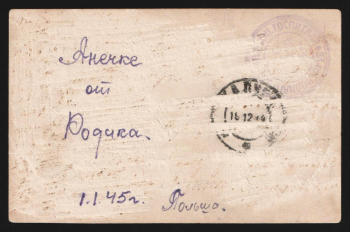 Анечке
от
Родика.
1.1.45г. Польша.